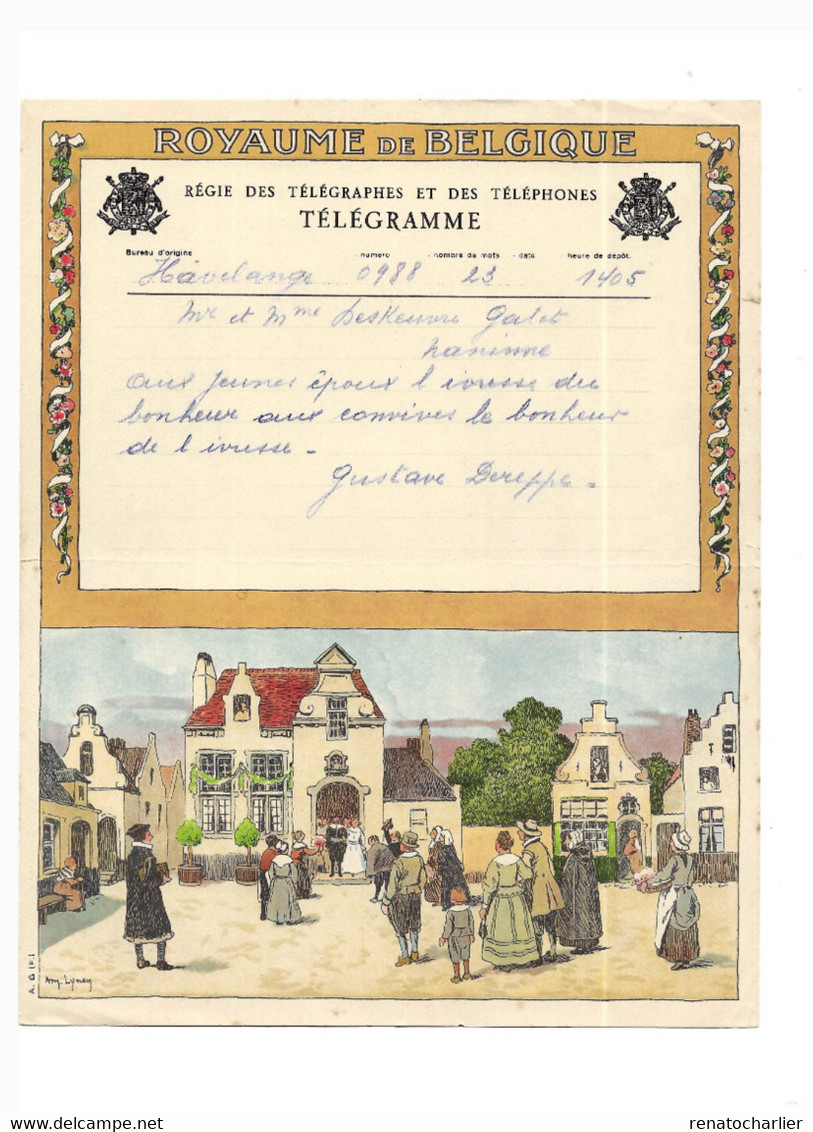 ROYAUME DE BELGIQUE
RÉGIE DES TÉLÉGRAPHES ET DES TÉLÉPHONES
TÉLÉGRAMME
Bureau d'origine numéro - nombre de mots - date heure de dépôt.
Havelange 0988 23 1405
Mr et Mme Galet
naninne
aux jeunes époux l ivresse du
bonheur aux convives le bonheur
de l ivresse -
Gustave Dereppe -
Am. Lynen
renatocharlier